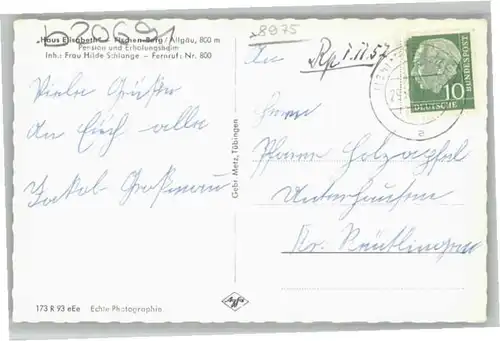 b20691
„Haus Elisabeth" Fischen-Berg/Allgäu, 800 m
Pension und Erholungsheim
Inh.: Frau Hilde Schlange – Fernruf: Nr. 800
Viele Grüße
An Euch alle
Jakob
173 R 93 eEe Echte Photographie
Gebr. Metz, Tübingen
8975
An
1.11.57
10
DEUTSCHE
BUNDESPOST
a
Herrn
Pfarrer Holzapfel
Unterhausen
Kr. Reutlingen